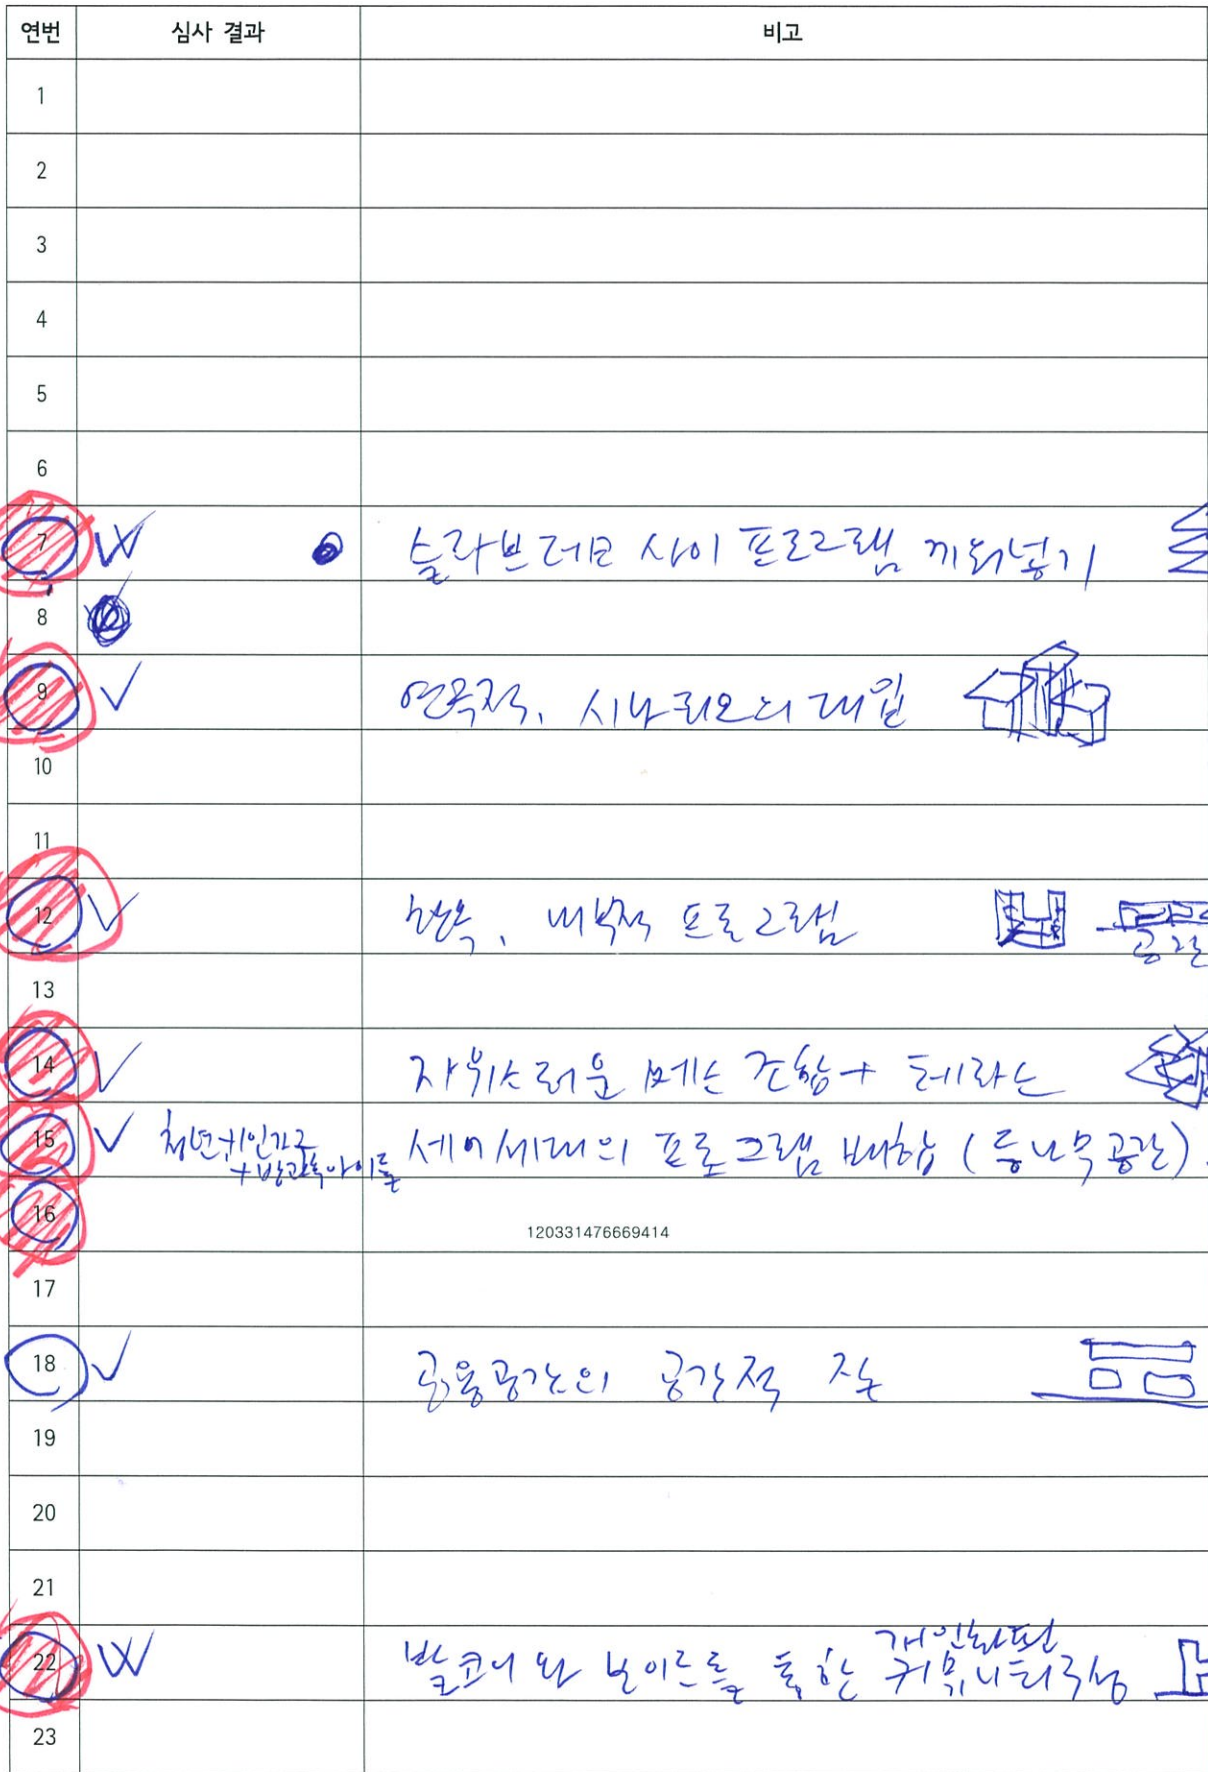 연번 심사 결과 비고
1
2
3
4
5
6
7 슬라브데크 사이 프로그램 끼워넣기
8
9 연극적, 시나리오의 대입
10
11
12 한옥, 내부적 프로그램 공간
13
14 매스 조합 + 테라스
15 청년 1인가구 + 방과후아이들 세어세대의 프로그램 배합 (등나무공간)
16
120331476669414
17
18 공용공간의 공간적 질
19
20
21
개인화된
22 발코니와 보이드를 통한 커뮤니티구성
23